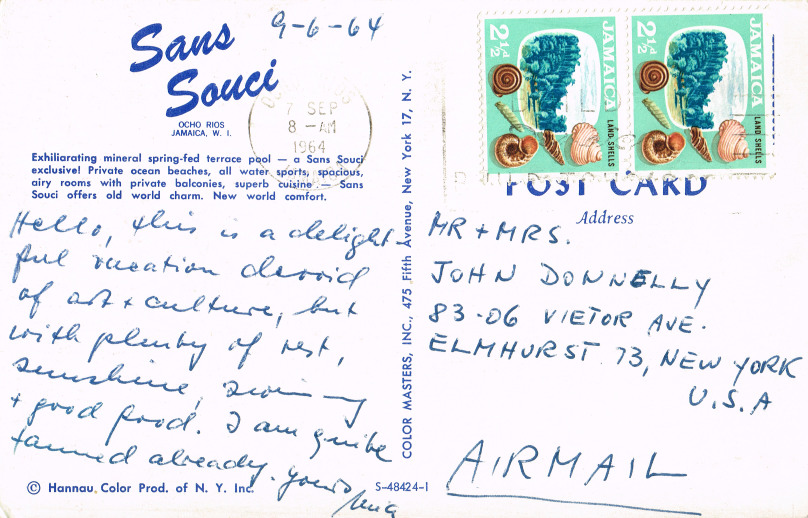 9-6-64
Sans
Souci
OCHO RIOS
JAMAICA, W. I.
7 SEP
8 - AM
1964
Exhilarating mineral spring-fed terrace pool — a Sans Souci
exclusive! Private ocean beaches, all water sports, spacious,
airy rooms with private balconies, superb cuisine — Sans
Souci offers old world charm. New world comfort.
Hello, this is a delight-
ful vacation devoid
of art + culture, but
with plenty of rest,
sunshine, swimming
+ good food. I am quite
tanned already. Yours
© Hannau Color Prod. of N. Y. Inc.
S-48424-1
COLOR MASTERS, INC., 475 Fifth Avenue, New York 17, N. Y.
2½d
JAMAICA
LAND SHELLS
2½d
JAMAICA
LAND SHELLS
POST CARD
Address
MR + MRS.
JOHN DONNELLY
83-06 VIETOR AVE.
ELMHURST 73, NEW YORK
U.S.A
AIRMAIL